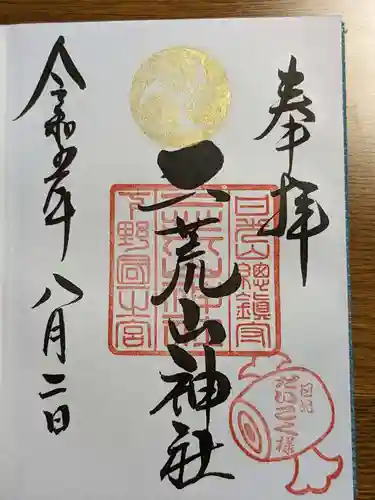 奉拝
日光山總鎮守
二荒山神社
下野國一之宮
令和五年八月二日
日光
だいこく様